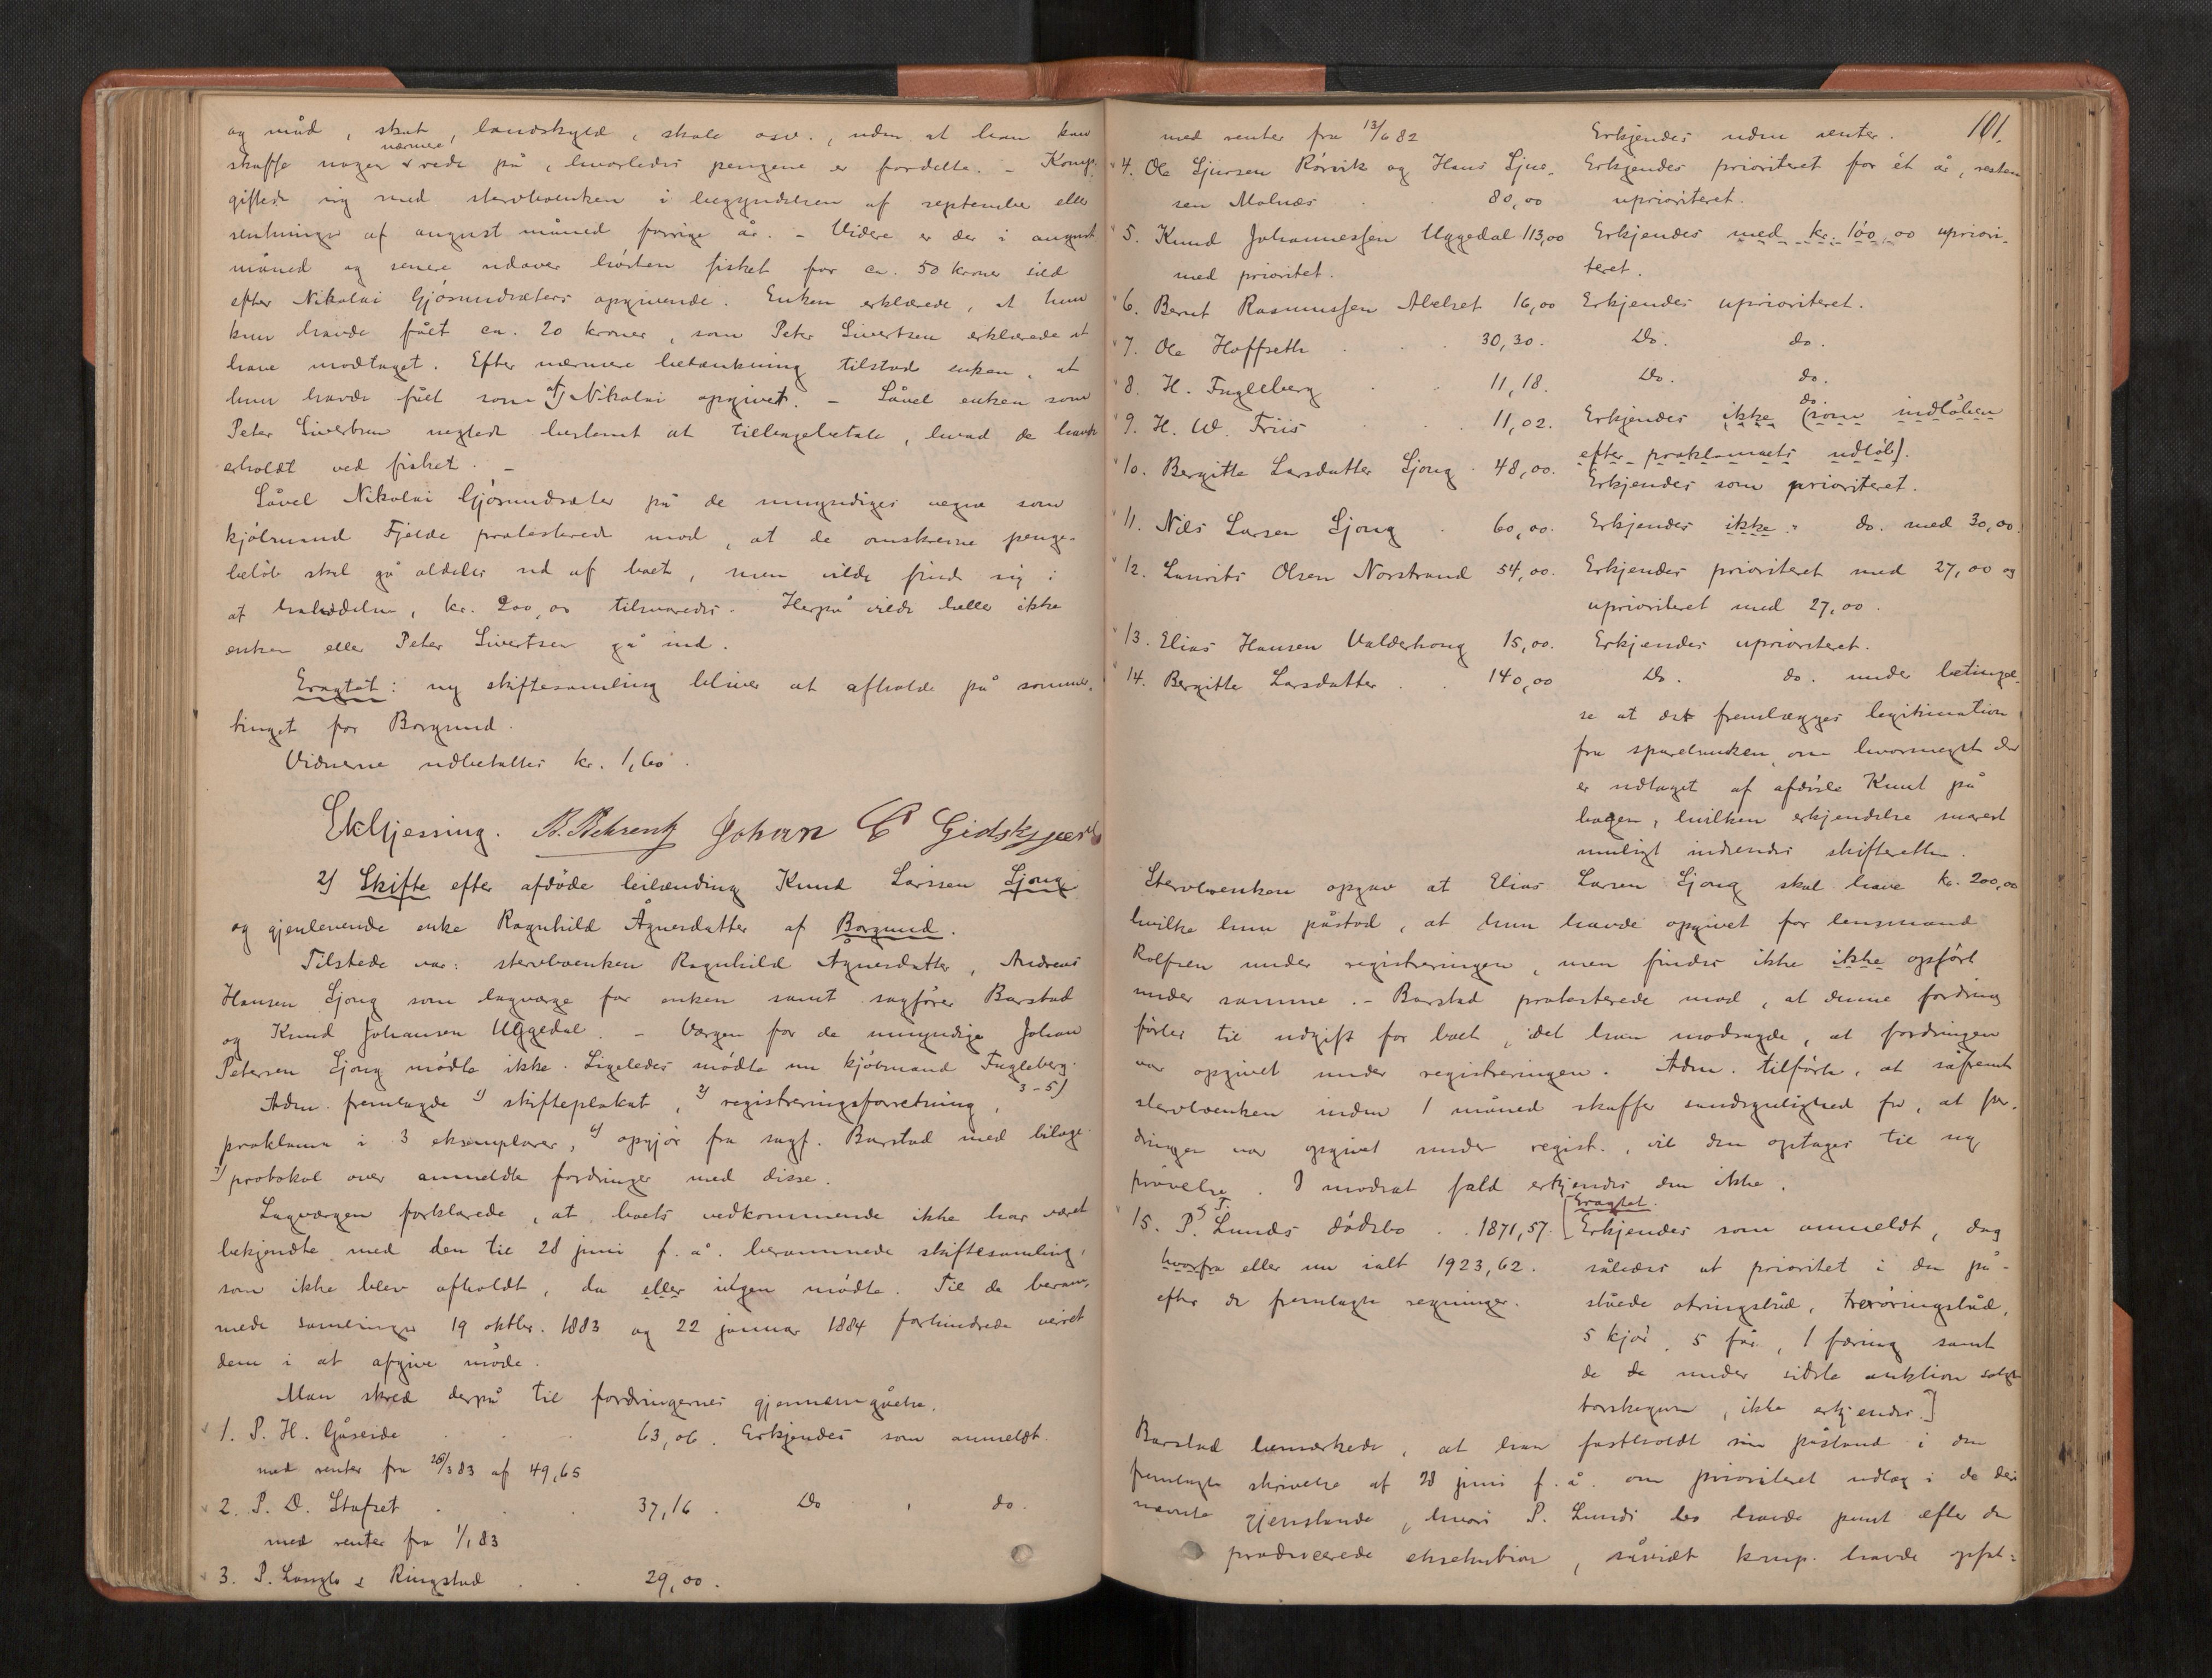 og mad, skat, landskyld, skole osv., uden at han kan
skaffe nogen nærmere rede på, hvorledes pengene er fordelte. – Komp.
giftede sig med stervboenken i begyndelsen af september eller
slutningen af august måned forrige år. – Videre er der i august
måned og senere udover høsten fisket for ca. 50 kroner sild
efter Nikolai Gjøsundsæters opgivende. Enken erklærede, at hun
kun havde fået ca. 20 kroner, som Peter Sivertsen erklærede at
have modtaget. Efter nærmere betænkning tilstod enken, at
hun havde fået som af Nikolai opgivet. – Såvel enken som
Peter Sivertsen negtede bestemt at tilbagebetale, hvad de havde
erholdt ved fisket. –
Såvel Nikolai Gjøsundsæter på de umyndiges vegne som
kjøbmand Fjelde protesterede mod, at de omskrevne penge-
beløb skal gå aldeles ud af boet, men vilde finde sig i
at halvdelen, kr. 200,00 tilsvaredes. Herpå vilde heller ikke
enken eller Peter Sivertsen gå ind.
Eragtet: ny skiftesamling bliver at afholde på sommer-
tinget for Borgund.
Vidnerne udbetaltes kr. 1,60.
Ekhjessing. B. Behrentz Johan C Gidskjær
2) Skifte efter afdøde leilænding Knud Larssen Ljong
og gjenlevende enke Ragnhild Ågnesdatter af Borgund.
Tilstede var: stervboenken Ragnhild Ågnesdatter, Andreas
Hansen Ljong som lagværge for enken samt sagfører Barstad
og Knud Johansen Uggedal. – Værgen for de umyndige Johan
Petersen Ljong mødte ikke. Ligeledes mødte nu kjøbmand Fugleberg.
Adm. fremlagde 1) skifteplakat, 2) registreringsforretning, 3-5)
proklama i 3 eksemplarer, 6) opgjør fra sagf. Barstad med bilage
7) protokol over anmeldte fordringer med disse.
Lagværgen forklarede, at boets vedkommende ikke har været
bekjendte med den til 28 juni f. å. berammede skiftesamling,
som ikke blev afholdt, da eller ingen mødte. Til de beram-
mede samlinger 19 oktbr. 1883 og 22 januar 1884 forhindrede veiret
dem i at afgive møde.
Man skred derpå til fordringernes gjennemgåelse.
1. P. H. Gåseide . . . 63,06. Erkjendes som anmeldt.
med renter fra 26/3 83 af 49,65
2. P. D. Stafset . . . 37,16. Do , do.
med renter fra 1/1 83
3. P. Langlo & Ringstad . . 29,00.
101.
med renter fra 13/6 82 Erkjendes uden renter.
4. Ole Sjursen Rørvik og Hans Sjur- Erkjendes prioriteret for ét år, resten
sen Molnæs . . 80,00 uprioriteret.
5. Knud Johannessen Uggedal 113,00 Erkjendes med kr. 100,00 upriori-
med prioritet. teret.
6. Bernt Rasmussen Alelset 16,00 Erkjendes uprioriteret.
7. Ole Hoffseth . . . 30,30. Do. do.
8. H. Fugleberg . . 11,18. Do. do.
9. H. W. Friis . . . 11,02. Erkjendes ikke do (som indløben
efter proklamaets udløb).
10. Bergitte Larsdatter Ljong . 48,00. Erkjendes som prioriteret.
11. Nils Larsen Ljong . 60,00. Erkjendes ikke. do. med 30,00.
12. Laurits Olsen Norstrand 54,00. Erkjendes prioriteret med 27,00 og
uprioriteret med 27,00.
13. Elias Hansen Valderhoug 15,00. Erkjendes uprioriteret.
14. Bergitte Larsdatter . . 140,00 Do. do. under betingel-
se at det fremlægges legitimation
fra sparebanken, om hvormeget der
er udtaget af afdøde Knut på
bogen, hvilken erkjendelse snarest
muligt indsendes skifteretten.
Stervboenken opgav at Elias Larsen Ljong skal have kr. 200,00
hvilke hun påstod, at hun havde opgivet for lensmand
Rolfsen under registreringen, men findes ikke ikke opført
under samme. – Barstad protesterede mod, at denne fordring
førtes til udgift for boet, idet han modsagde, at fordringen
var opgivet under registreringen. Adm. tilførte, at såfremt
stervboenken inden 1 måned skaffer sandsynlighed for, at for-
dringen var opgivet under regist., vil den optages til ny
prøvelse. I modsat fald erkjendes den ikke.
Eragtet.
15. P. S. T. Lunds dødsbo . . 1871,57. [Erkjendes som anmeldt, dog
hvorfra eller nu ialt 1923,62. således at prioritet i den på-
efter de fremlagte regninger. ståede otringsbåd, treroringsbåd,
5 kjør, 5 får, 1 færing samt
de de under sidste auktion solgte
torskegarn, ikke erkjendes.]
Barstad bemærkede, at han fastholdt sin påstand i den
fremlagte skrivelse af 28 juni f. å. om prioriteret udlæg i de der
nævnte gjenstande, hvori P. Lunds bo havde pant efter den
producerede eksekution, såvidt komp. havde opfat-